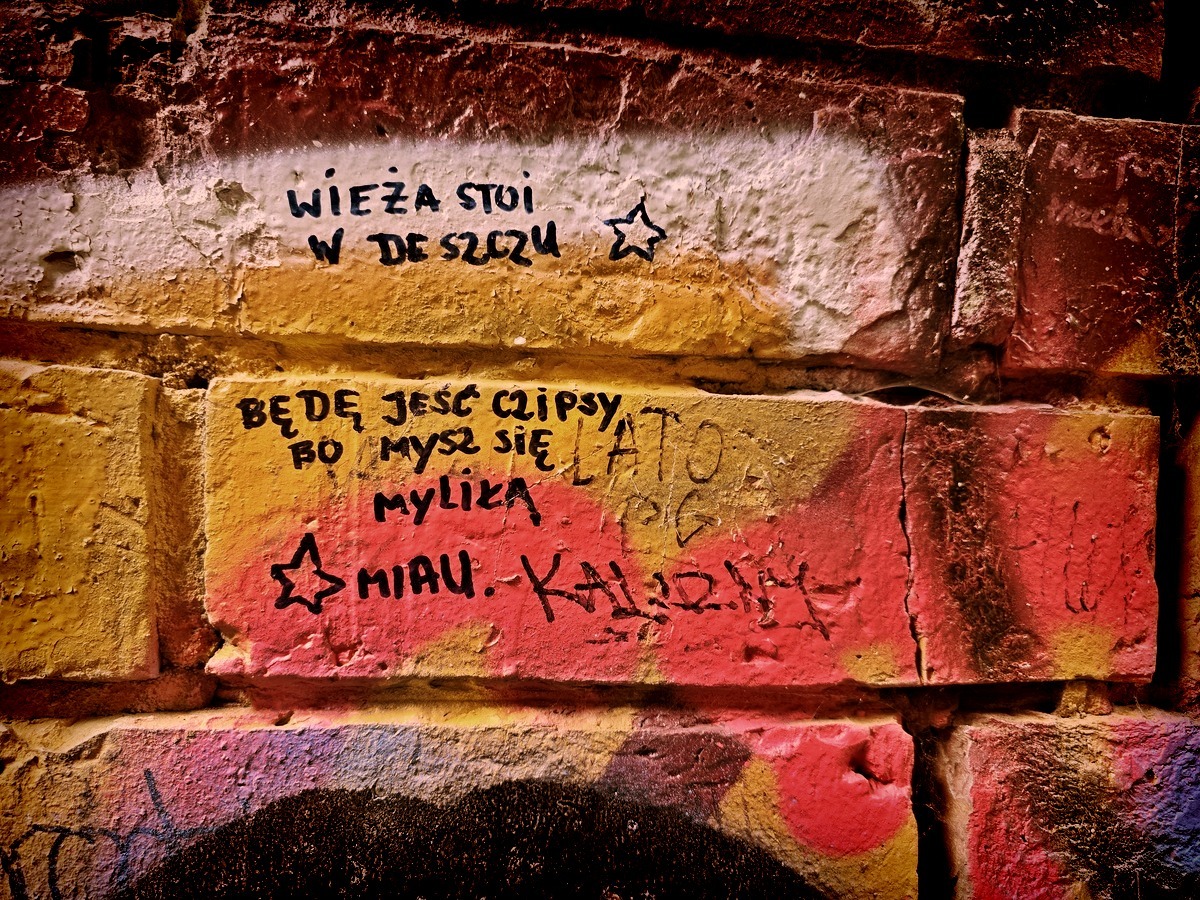 WIEŻA STOI
W DESZCZU
BĘDĘ JEŚĆ CZIPSY,
BO MYSZ SIĘ
MYLIŁA
MIAU.
LATO